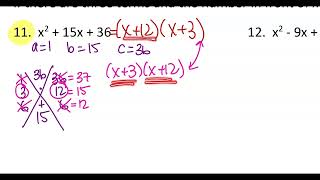 11. x² + 15x + 36 = (x+12)(x+3)
a=1 b=15 c=36
(x+3)(x+12)
1 36 36 = 37
3 · 12 = 15
+ = 12
15
12. x² - 9x +